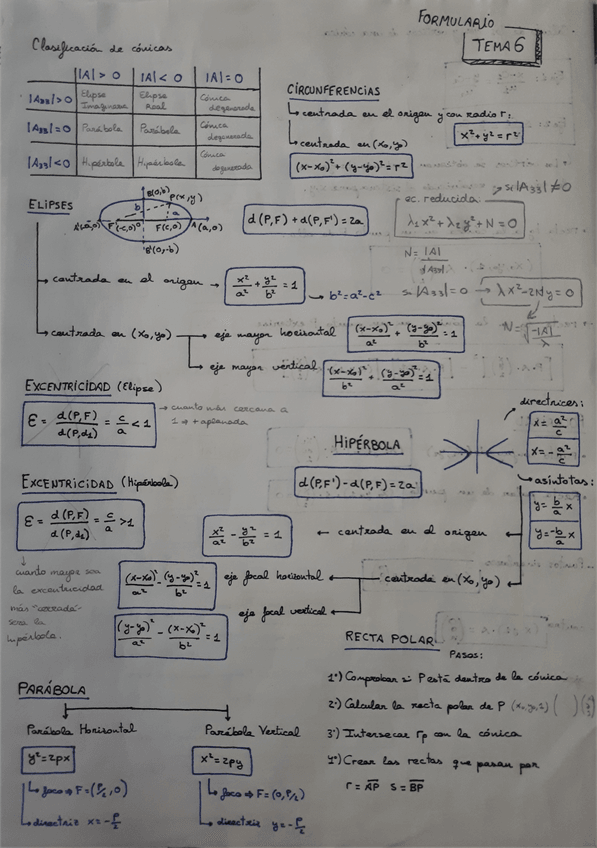 FORMULARIO
TEMA 6
Clasificación de cónicas
|A| > 0 |A| < 0 |A| = 0
|A33| > 0 Elipse Imaginaria Elipse Real Cónica degenerada
|A33| = 0 Parábola Parábola Cónica degenerada
|A33| < 0 Hipérbola Hipérbola Cónica degenerada
CIRCUNFERENCIAS
centrada en el origen y con radio r:
x² + y² = r²
centrada en (x₀, y₀)
(x-x₀)² + (y-y₀)² = r²
ELIPSES
B(0,b)
P(x,y)
b a
A'(-a,0) F'(-c,0) 0 F(c,0) A(a,0)
B'(0,-b)
d(P,F) + d(P,F') = 2a
si |A33| ≠ 0
ec. reducida:
λ₁x² + λ₂y² + N = 0
N = |A| / |A33|
si |A33| = 0 → λx² - 2Ny = 0
N = √(-|A|/λ)
centrada en el origen → x²/a² + y²/b² = 1 → b² = a² - c²
centrada en (x₀, y₀) → eje mayor horizontal (x-x₀)²/a² + (y-y₀)²/b² = 1
eje mayor vertical (x-x₀)²/b² + (y-y₀)²/a² = 1
EXCENTRICIDAD (Elipse)
ε = d(P,F)/d(P,d₁) = c/a < 1
cuanto más cercana a
1 ⇒ + aplanada
HIPÉRBOLA
d(P,F') - d(P,F) = 2a
directrices:
x = a²/c
x = -a²/c
asíntotas:
y = b/a x
y = -b/a x
EXCENTRICIDAD (Hipérbola)
ε = d(P,F)/d(P,d₁) = c/a > 1
cuanto mayor sea
la excentricidad
más "cerrada"
será la
hipérbola.
x²/a² - y²/b² = 1 ← centrada en el origen
(x-x₀)²/a² - (y-y₀)²/b² = 1 eje focal horizontal ← centrada en (x₀, y₀)
(y-y₀)²/a² - (x-x₀)²/b² = 1 eje focal vertical
RECTA POLAR
PASOS:
1º) Comprobar si P está dentro de la cónica
2º) Calcular la recta polar de P (x₀, y₀, 1) ( ) (
3º) Intersecar rp con la cónica
4º) Crear las rectas que pasan por
r = AP s = BP
PARÁBOLA
Parábola Horizontal
y² = 2px
foco ⇒ F = (P/2, 0)
directriz x = -P/2
Parábola Vertical
x² = 2py
foco ⇒ F = (0, P/2)
directriz y = -P/2